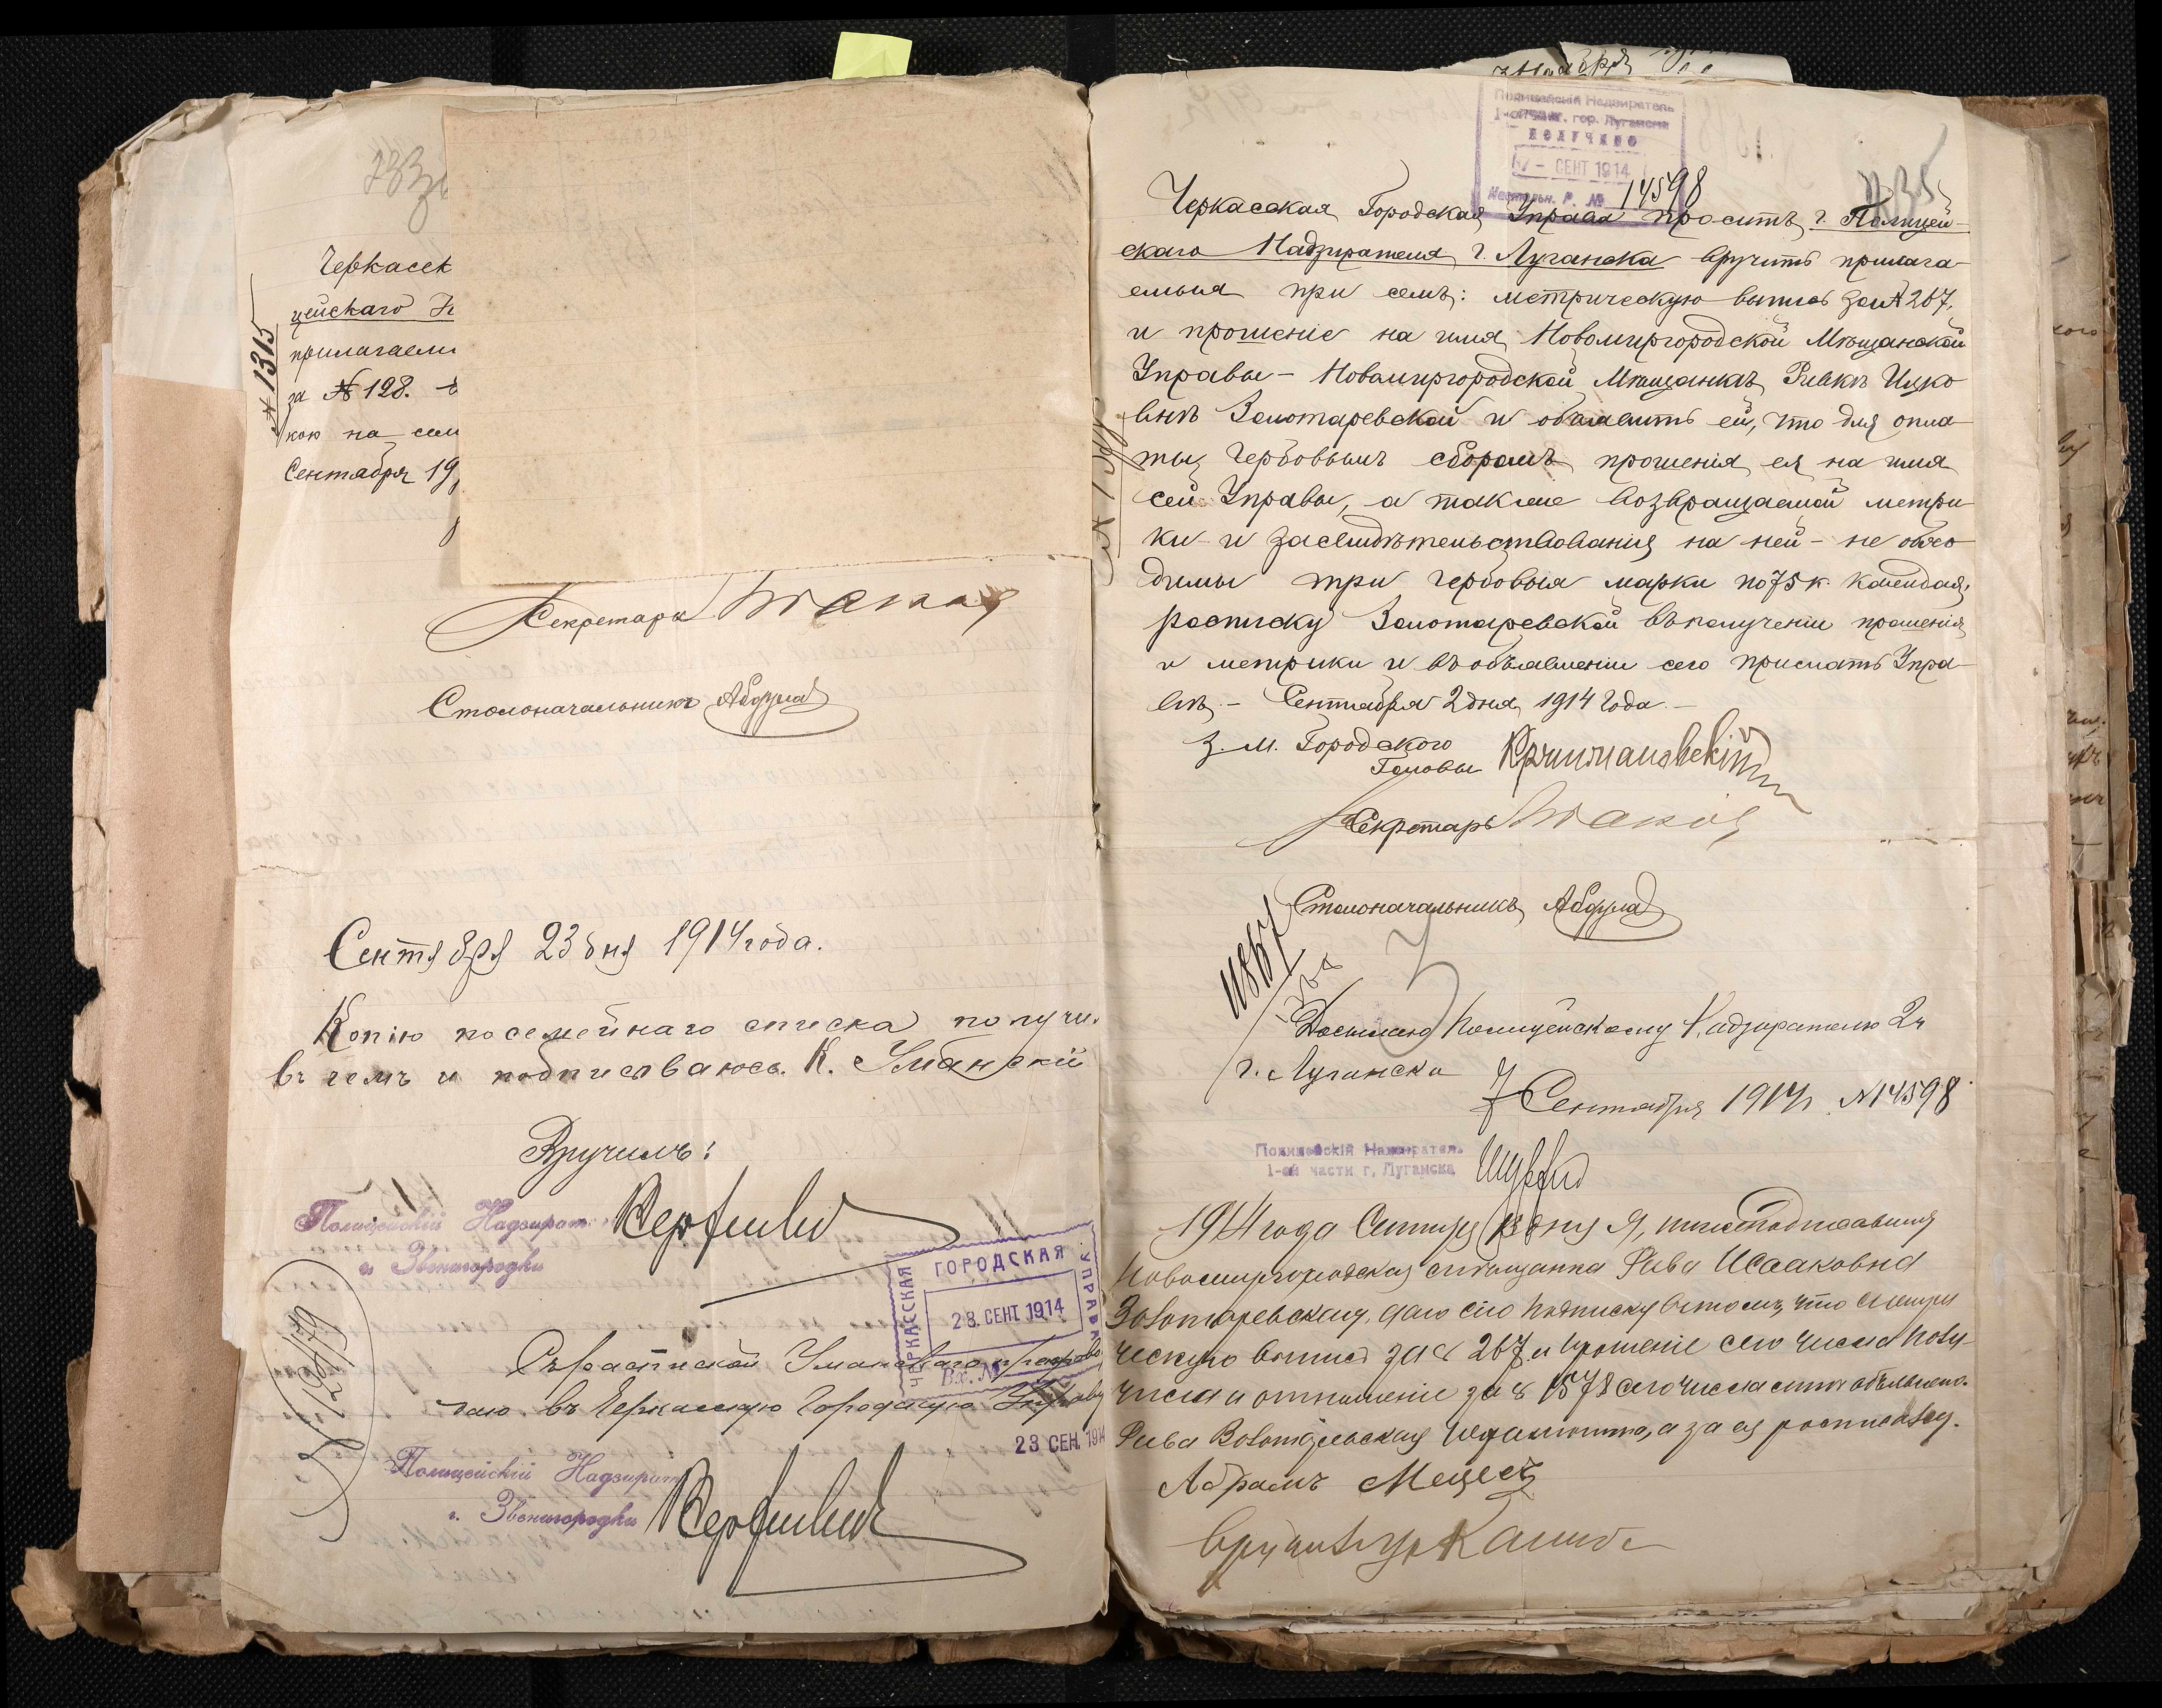 Черкасск
цейскаго
прилагаемы
за № 128.
кою на сем
Сентября 19
№ 1315
Секретарь
Столоначальникъ
Сентября 23 дня 1914 года.
Копію посемейнаго списка получи.
въ чемъ и подписываюсь. К. Уманскій
Вручилъ:
Полицейскій Надзират.
г. Звенигородки
ЧЕРКАССКАЯ
ГОРОДСКАЯ
УПРАВА
28. СЕНТ 1914
Вх. №
Съ роспиской Уманскаго
въ Черкасскую Городскую Управу
23 СЕН. 1914
Полицейскій Надзират
г. Звенигородки
Полицейскій Надзиратель
1-ой част. гор. Луганска
ПОЛУЧЕНО
7 - СЕНТ 1914
Настольн. Р. № 14598
Черкасская Городская Управа проситъ г. Полицей-
скаго Надзирателя г. Луганска вручить прилага-
емыя при семъ: метрическую выпись за № 267,
и прошеніе на имя Новомиргородской Мѣщанской
Управы - Новомиргородской Мѣщанкѣ Ривкѣ Ицко
внѣ Золотаревской и объявить ей, что для опла
ты гербовымъ сборомъ прошенія ея на имя
сей Управы, а также возвращаемой метри
ки и засвидѣтельствованія на ней - не обхо
димы три гербовыя марки по 75 к. каждая,
росписку Золотаревской въ полученіи прошенія
и метрики и въ объявленіи сего прислать Упра-
вѣ. - Сентября 2 дня 1914 года. -
З. М. Городского
Головы
Секретарь
Столоначальникъ
Полицейскому Надзирателю 2 ч
г. Луганска
7 Сентября 1914 г. № 14598
Полицейскій Надзиратель
1-ой части г. Луганска
1914 года дня я, нижеподписавшаяся
Новомиргородская мѣщанка Рива Исааковна
Золотаревская, даю сію подписку въ томъ, что метри
ческую выпись за № 267 и прошеніе сего числа полу-
чила и отношеніе за № 1578 сего числа мнѣ объявлено.
Рива Золотаревская неграмотна, а за ея росписался.
Абрамъ